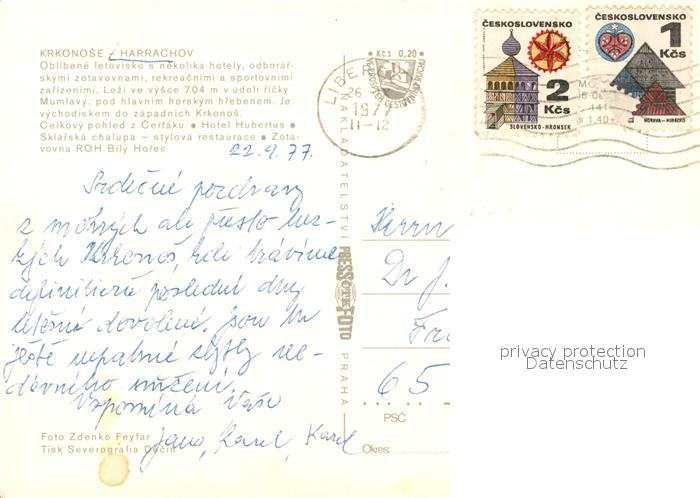 KRKONOŠE - HARRACHOV
Oblíbené letovisko s několika hotely, odborář-
skými zotavovnami, rekreačními a sportovními
zařízeními. Leží ve výšce 704 m v údolí říčky
Mumlavy, pod hlavním horským hřebenem. Je
východiskem do západních Krkonoš.
Celkový pohled z Čerťáku • Hotel Hubertus •
Sklářská chalupa – stylová restaurace • Zota-
vovna ROH Bílý Hořec
22.9.77.
Srdečné pozdravy
z mokrých ale přesto hez-
kých Krkonoš, kde trávíme
definitivně poslední dny
letošní dovolené. Jsou tu
ještě nepatrné zbytky ne-
dávného
Vzpomíná Vaše
Jana, Karel, Karel
Foto Zdenko Feyfar
Tisk Severografia Děčín
Kčs 0,20
LIBE
26
197
11-12
NAKLADATELSTVÍ
PRESSFOTO
PRAHA
ČESKOSLOVENSKO
2
Kčs
SLOVENSKO - HRONSEK
ČESKOSLOVENSKO
1
Kčs
MORAVA - HORÁCKO
Herrn
Dr. J.
Fr
65
PSČ
Okres:
privacy protection
Datenschutz